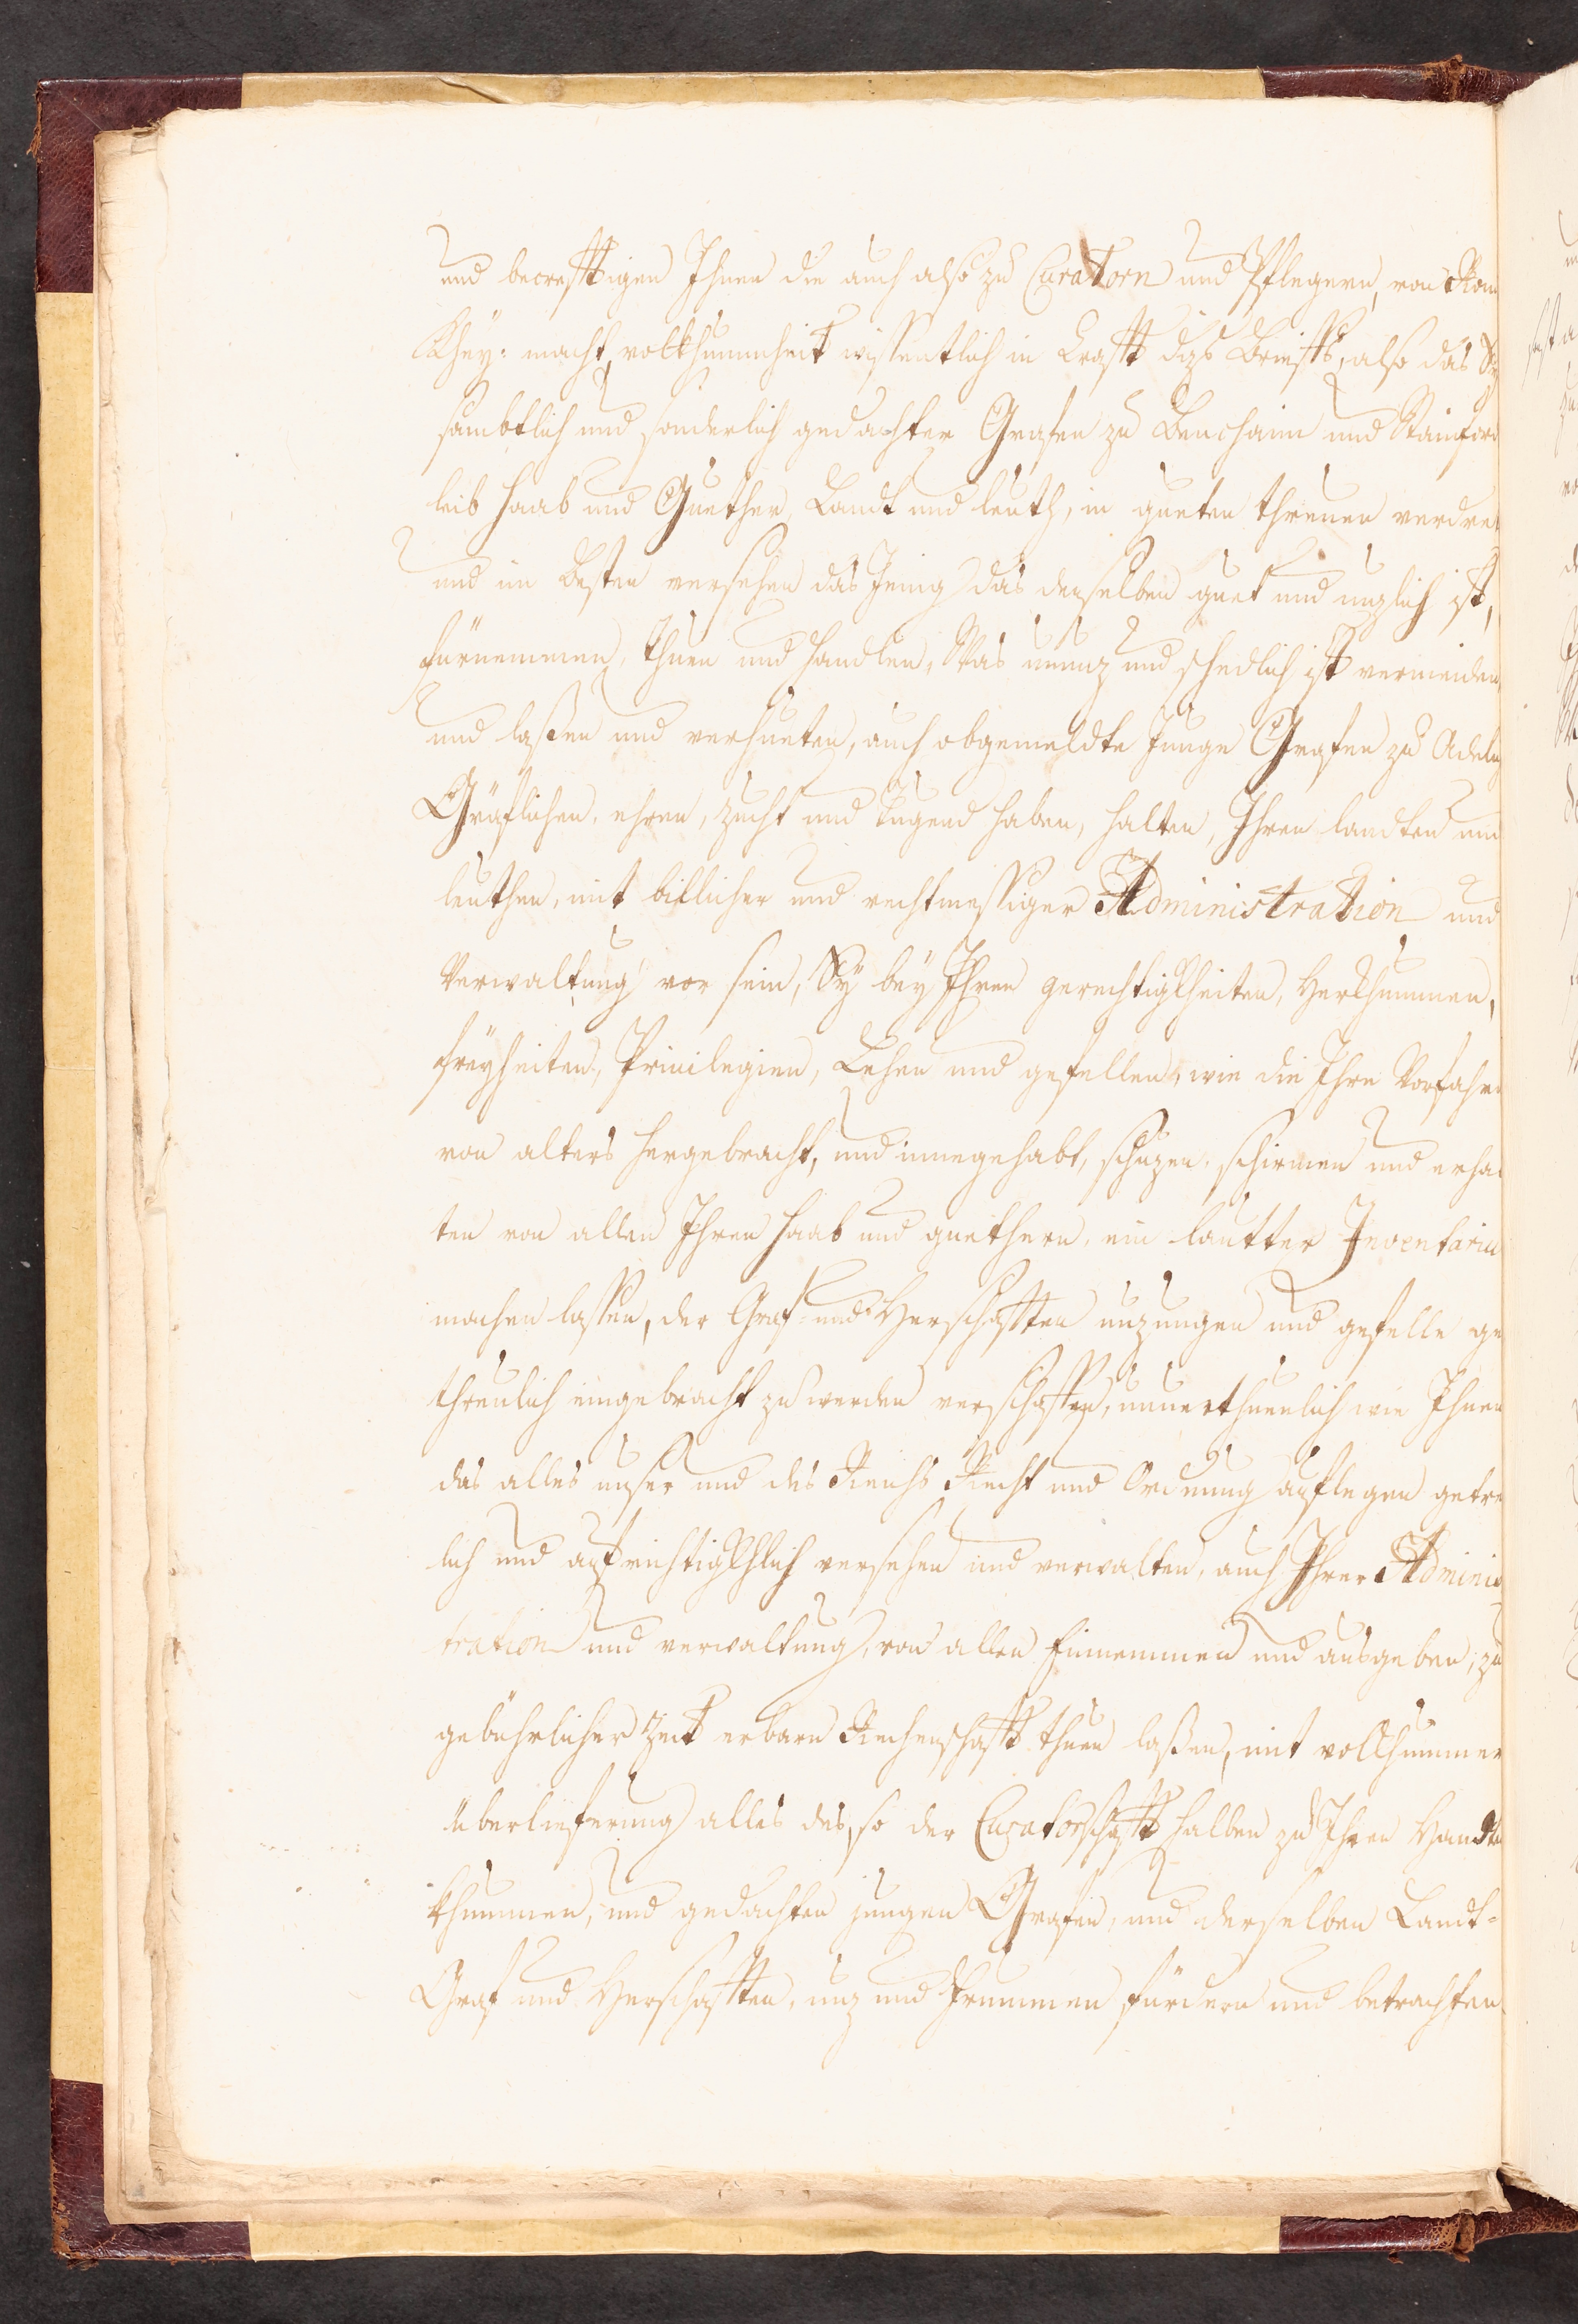 und becrefftigen Ihnen die auch also zu Curatorn und Pflegern, von Rom
Khey: macht, volkhummheit wissentlich in Crafft dißs Brieffs, also das Sy
sambtlich und sonderlich gedachter Grafen zu Benthaim und Stainford
leib haab und Guether, Landt und leuth, in gueten threuen
und im besten versehen das Jenig das denselben guet und nuzlich ist,
fürnemmen, thuen und handlen, Was unnuz und schedlich ist vermeiden,
und laßen und verhueten, auch obgemeldte Junge Grafen zu Adelig
Gräflichen, ehren, zucht und tugend haben, halten, Ihren landten und
leuthen, mit billicher und rechtmessiger Administration und
Verwaltung vor sein, Sy bey Ihren gerechtigkheiten, Herkhummen,
freyheiten, Privilegien, Lehen und gefellen, wie die Ihre Vorfahrn
von alters hergebracht, und innegehabt, schuzen, schirmen und erhal
ten von allen Ihren haab und guethern, ein lautter Inventariu
machen lassen, der Graf und Herschafften nuzungen und gefelle ge
threulich eingebracht zu werden verschaffen, unuerthuenlich wie Ihnen
das alles unser und des Reichs Recht und Ordnung auflegen getreu
lich und aufrichtigkhlich versehen und verwalten, auch Ihrer Adminis
tration und verwaltung, von allen Einnemmen und ausgeben, zu
gebührlicher Zeit erbare Rechenschafft thuen laßen, mit vollkhummer
überliferung alles des, so der Curatorschafft halben zu Ihren Handten
khummen, und gedachten jungen Grafen, und derselben Landt-
Graf und Herschafften, nuz und Frummen fürdern und betrachten